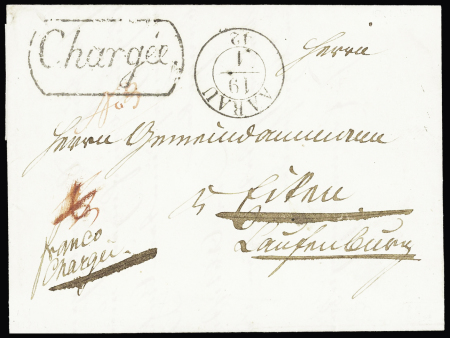 Chargée.
AARAU
19
1
12
Herrn
Herrn Gemeindammann
Eiken
Laufenburg
franco
Chargée.